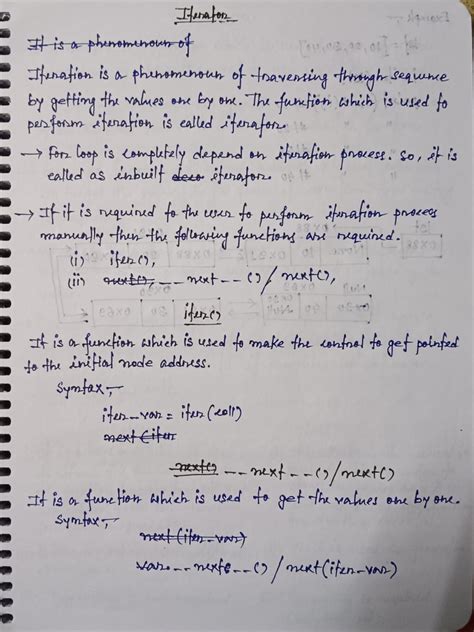 Iterator
It is a phenomenoun of
Iteration is a phenomenoun of traversing through sequence
by getting the values one by one. The function which is used to
perform iteration is called iterator.
→ For loop is completely depend on iteration process. So, it is
called as inbuilt deco iterator.
→ If it is required to the user to perform iteration process
manually then the following functions are required.
(i) iter(),
(ii) next(), __next__() / next(),
iter()
It is a function which is used to make the control to get pointed
to the initial node address.
Syntax,-
iter_var = iter(coll)
next(iter
next() __next__() / next()
It is a function which is used to get the values one by one.
Syntax,-
next(iter_var)
var.__next__() / next(iter_var)